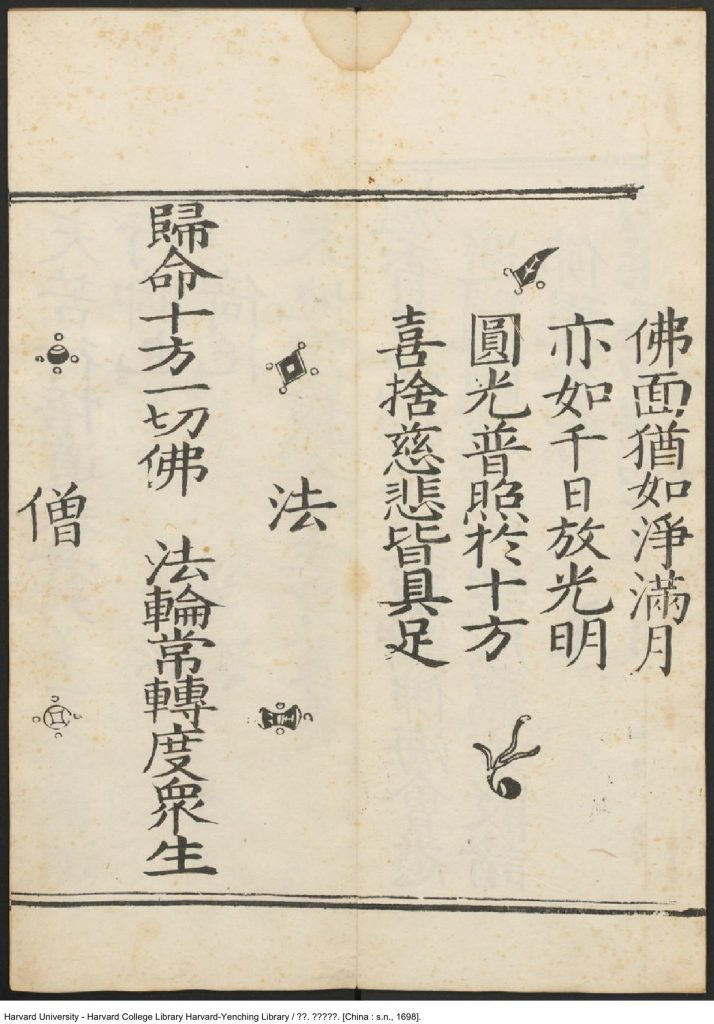 佛面猶如淨滿月
亦如千日放光明
圓光普照於十方
喜捨慈悲皆具足
法
歸命十方一切佛　法輪常轉度衆生
僧
Harvard University - Harvard College Library Harvard-Yenching Library / ??. ?????. [China : s.n., 1698].